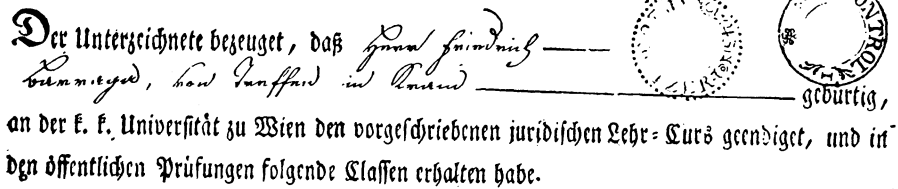 Der Unterzeichnete bezeuget, daß Herr Friedrich
Barraga, von Treffen in Krain geburtig,
an der k. k. Universität zu Wien den vorgeschriebenen juridischen Lehr-Curs geendiget, und in
den öffentlichen Prüfungen folgende Classen erhalten habe.